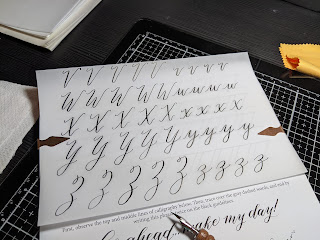 V V V V V v v v v
W W W W W w w w w
X X X X X x x x x
Y Y Y Y Y y y y y
Z Z Z Z Z z z z z
First, observe the top and middle lines of calligraphy below. Then, trace over the gray dashed words, and end by
writing this phrase on the black guidelines.
ahead... make my day!